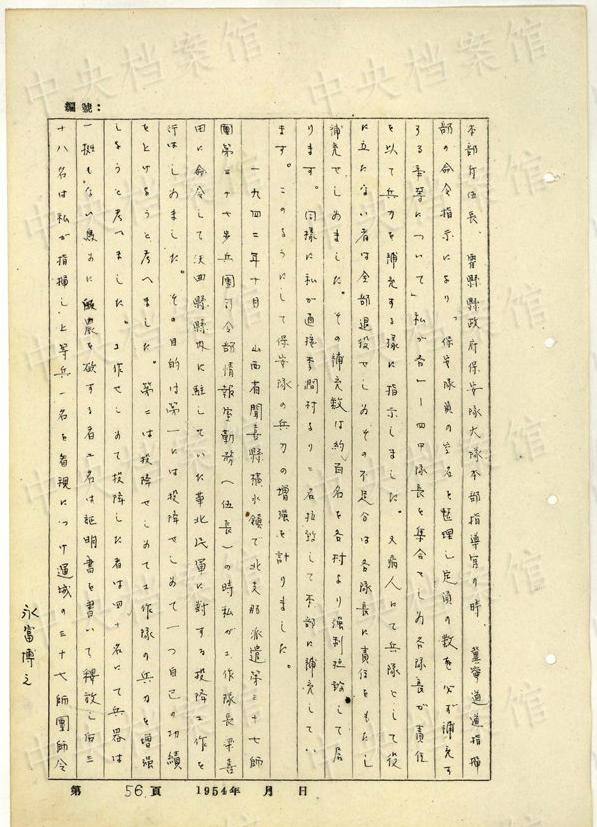 編號：
本部付伍長、霍縣縣政府保安隊大隊本部指導官の時、冀寧道道指揮
部の命令指示により、「保安隊員の空名を整理し定員の数を必ず補充す
る事等について」私が各一ー四中隊長を集合せしめ各隊長が責任
を以て兵力を補充する様に指示しました。又病人にて兵隊として役
に立たない者は全部退役せしめその不足分は各隊長に責任をもたし
補充せしめました。その補充数は約百名を各村より強制拉致して居
ります。同様に私が直接李間村より二名拉致して本部に補充してい
ます。このようにして保安隊の兵力の増強を計りました。
一九四二年十月 山西省聞喜縣横水鎮で北支那派遣第三十七師
團第三十七歩兵團司令部情報室勤務（伍長）の時私が工作隊長梁喜
田に命令して沃曲縣縣内に駐していた華北民軍に対する投降工作を
行はしめました。その目的は第一には投降せしめて一つ自己の功績
をとげようと考へました。第二は投降せしめて工作隊の兵力を増強
しようと考へました。工作せしめて投降した者は四十名にて兵器は
一挺もない為めに帰農を欲する者二名は証明書を書いて釈放し百三
十八名は私が指揮し上等兵一名を看視につけ運城の三十七師團師令
永富博之
第 56.頁 1954年 月 日
中央档案馆
中央档案馆
中央档案馆
中央档案馆